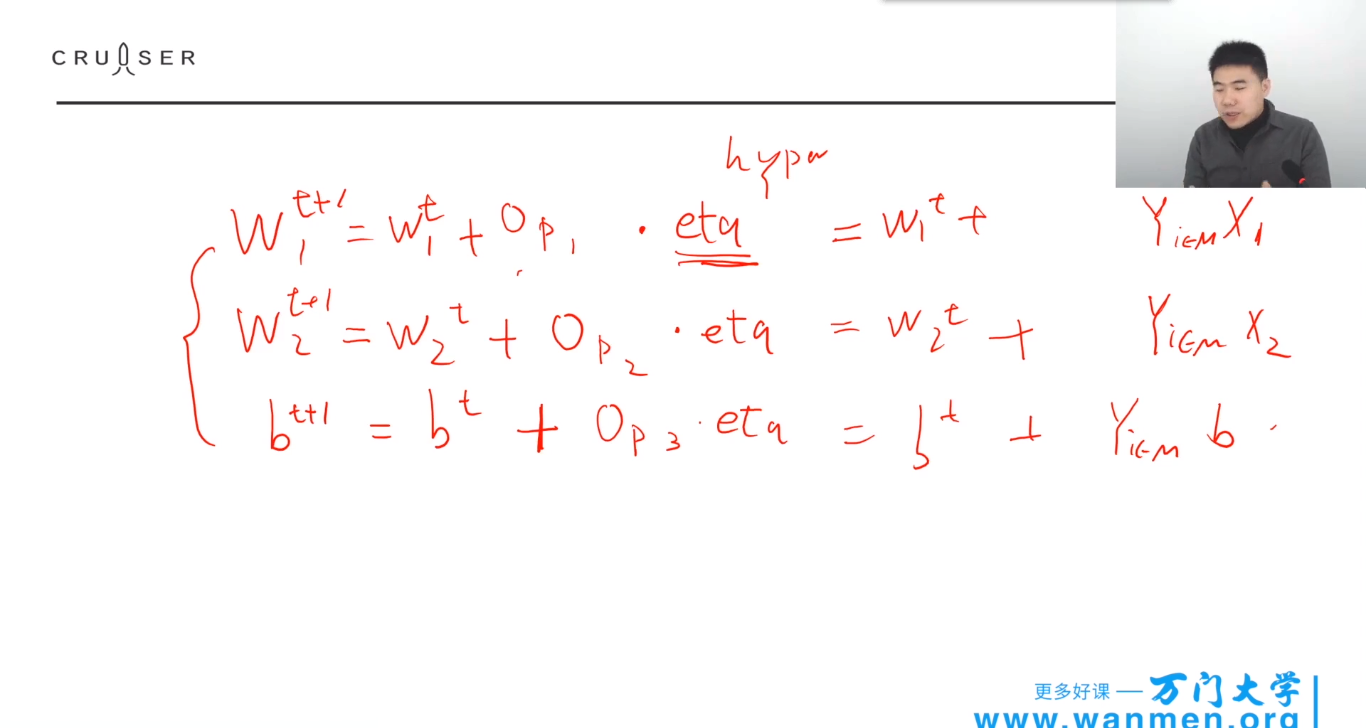 CRUISER
hypa
W₁^{t+1} = W₁^t + Op₁ · eta = W₁^t + Y_{i∈M} X₁
W₂^{t+1} = W₂^t + Op₂ · eta = W₂^t + Y_{i∈M} X₂
b^{t+1} = b^t + Op₃ · eta = b^t + Y_{i∈M} b
更多好课 — 万门大学
www.wanmen.org